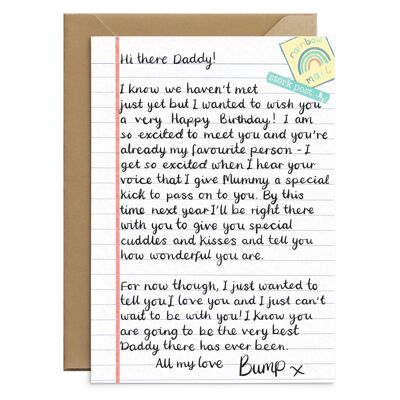 Hi there Daddy!
rainbow
mail
stork post
I know we haven't met
just yet but I wanted to wish you
a very Happy Birthday! I am
so excited to meet you and you're
already my favourite person - I
get so excited when I hear your
voice that I give Mummy a special
kick to pass on to you. By this
time next year I'll be right there
with you to give you special
cuddles and kisses and tell you
how wonderful you are.
For now though, I just wanted to
tell you I love you and I just can't
wait to be with you! I know you
are going to be the very best
Daddy there has ever been.
All my love Bump x